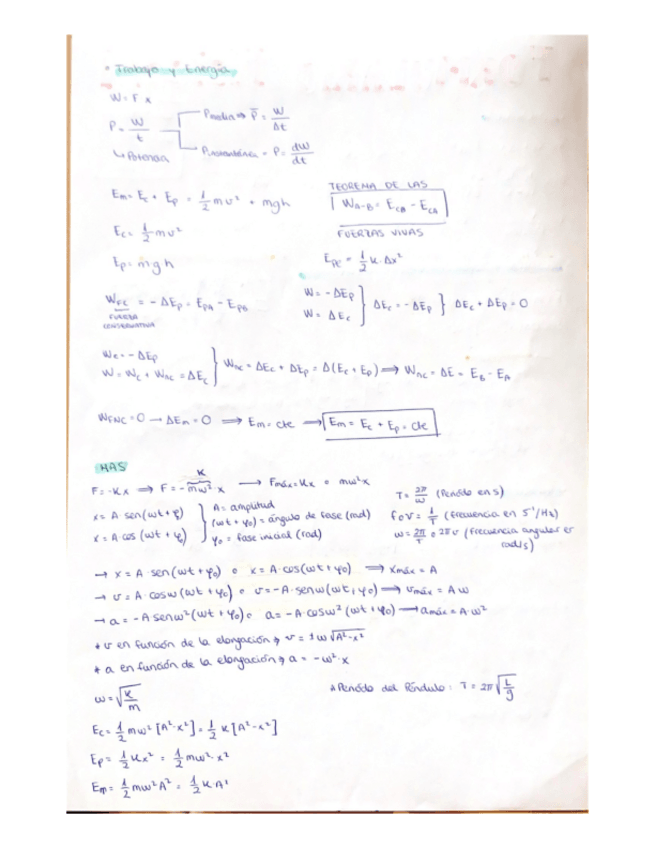 * Trabajo y Energía
W = F x
P = W/t
Pmedia ⇒ P̄ = W/Δt
Pinstantánea = P = dW/dt
↳ Potencia
Em = Ec + Ep = 1/2 m v² + mgh
Ec = 1/2 m v²
Ep = mgh
TEOREMA DE LAS
W A-B = EcB - EcA
FUERZAS VIVAS
EPE = 1/2 K·Δx²
WFC = -ΔEp = EpA - EpB
FUERZA
CONSERVATIVA
W = -ΔEp
W = ΔEc
} ΔEc = -ΔEp } ΔEc + ΔEp = 0
Wc = -ΔEp
W = Wc + Wnc = ΔEc
} Wnc = ΔEc + ΔEp = Δ(Ec + Ep) ⇒ Wnc = ΔE = EB - EA
WFNC = 0 → ΔEm = 0 ⇒ Em = cte ⇒ Em = Ec + Ep = cte
MAS
K
F = -Kx ⇒ F = -mω²·x → Fmáx = Kx o mω²x
x = A·sen(ωt+φ)
x = A·cos(ωt+φ)
A = amplitud
(ωt+φ₀) = ángulo de fase (rad)
φ₀ = fase inicial (rad)
T = 2π/ω (Periódo en s)
f o ν = 1/T (frecuencia en s⁻¹/Hz)
ω = 2π/T o 2πν (frecuencia angular en
rad/s)
→ x = A·sen(ωt+φ₀) o x = A·cos(ωt+φ₀) ⇒ xmáx = A
→ v = A·cosω(ωt+φ₀) o v = -A·senω(ωt+φ₀) ⇒ vmáx = Aω
→ a = -A senω²(ωt+φ₀) o a = -A·cosω²(ωt+φ₀) → amáx = A·ω²
* v en función de la elongación → v = ±ω√(A²-x²)
* a en función de la elongación → a = -ω²·x
ω = √(K/m)
* Periódo del Péndulo: T = 2π√(L/g)
Ec = 1/2 mω²[A²-x²] = 1/2 K[A²-x²]
Ep = 1/2 Kx² = 1/2 mω²·x²
Em = 1/2 mω²A² = 1/2 K·A²